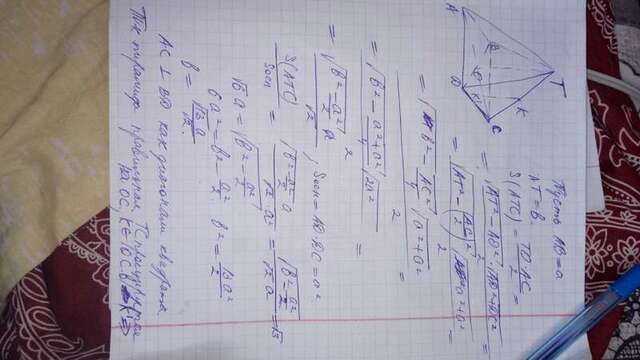 A
B
T
O
D
C
K
Пусть AB=a
AT=b,
S(ATC) = TO·AC/2 =
= √(AT²-AO²)·√(AD²+DC²)/2 =
= √(AT²-(AC/2)²)·√(a²+a²)/2 =
= √(b²-AC²/4)·√(a²+a²)/2 =
= √(b²-(a²+a²)/4)·√(2a²)/2 =
= √(b²-a²/2) a/√2, Sосн=AD·DC=a²
S(ATC)/Sосн = √(b²-a²/2) a/(√2 a²) = √(b²-a²/2)/(√2 a) = √3
√6 a = √(b²-a²/2)
6a²=b²-a²/2. b²=13a²/2
b = √13 a/√2.
AC ⊥ BD как диагонали квадрата
Т.к пирамида правильная,